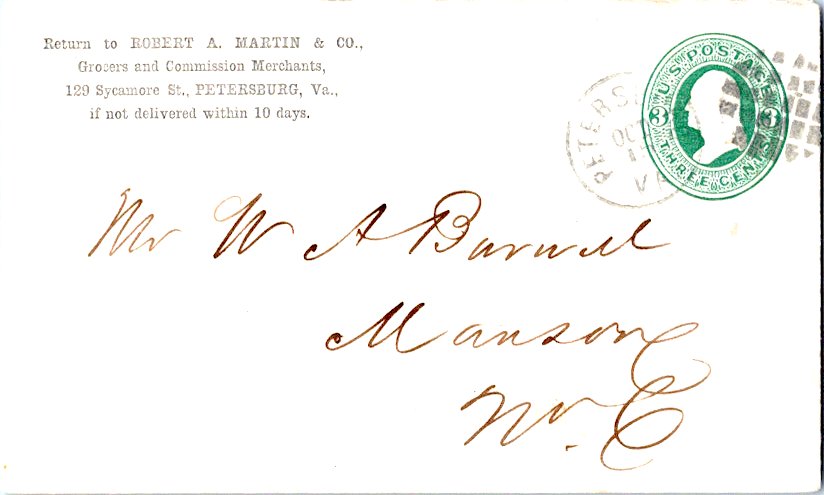 Return to ROBERT A. MARTIN & CO.,
Grocers and Commission Merchants,
129 Sycamore St., PETERSBURG, Va.,
if not delivered within 10 days.
U.S. POSTAGE
3 3
THREE CENTS
PETERS
OCT
VA
Mr W A Burwell
Manson
N. C